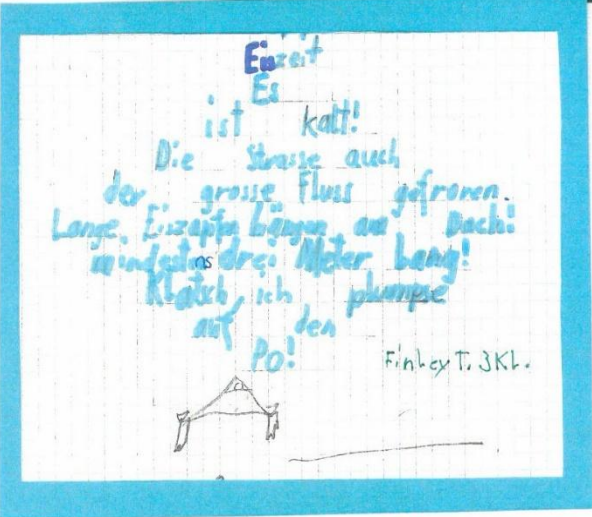 Eiszeit
Es
ist kalt!
Die Strasse auch
der grosse Fluss gefroren.
Lange Eiszapfen hängen am Dach!
mindestens drei Meter lang!
Klatsch ich plumpse
auf den
Po!
Finley T. 3Kl.